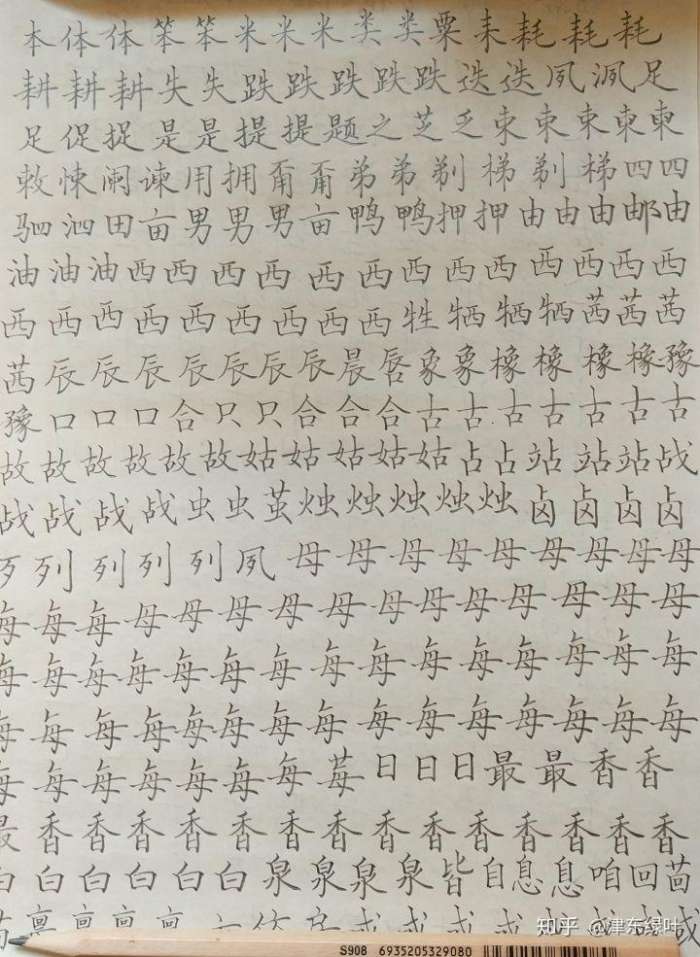 本体体笨笨米米米类类粟耒耗耗耗
耕耕耕失失跌跌跌跌跌迭迭夙夙足
足促捉是是提提题之芝乏束束束束束
敕悚阑谏用拥甭甭弟弟剃梯剃梯四四
驷泗田亩男男男亩鸭鸭押押由由由邮由
油油油西西西西西西西西西西西西西
西西西西西西西西西牲牺牺牺茜茜茜
茜辰辰辰辰辰辰辰晨唇象象橡橡橡橡豫
豫口口口合只只合合合古古古古古古古
故故故故故故姑姑姑姑姑占占站站站战
战战战战虫虫茧烛烛烛烛烛卤卤卤卤
歹列列列列夙母母母母母母母母母
每每每母母母母母母母母母母母母
每每每每每每每每每每每每每每每
每每每每每每每每每每每每每每每
每每每每每每每每莓日日日最最香香
最香香香香香香香香香香香香香香
白白白白白白泉泉泉泉皆自息息咱回茴
知乎 @津东绿叶
S908 6935205329080